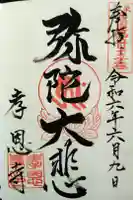 奉拝
令和六年六月九日
弥陀大悲
孝恩寺